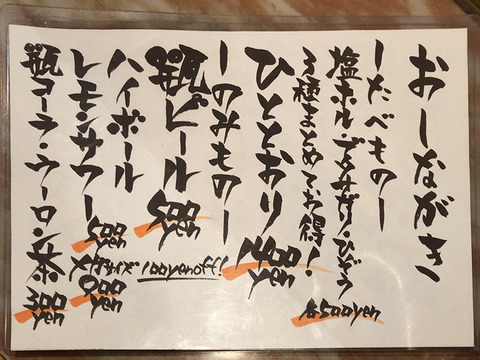 おしながき
ーたべものー
塩ホル・ブタサガリ・ひぞう
各500yen
3種まとめてお得!
ひととおり
1400yen
ーのみものー
瓶ビール
500yen
ハイボール
レモンサワー
500yen
大サイズ 100yenoff!
瓶コーラ・ウーロン茶
300yen